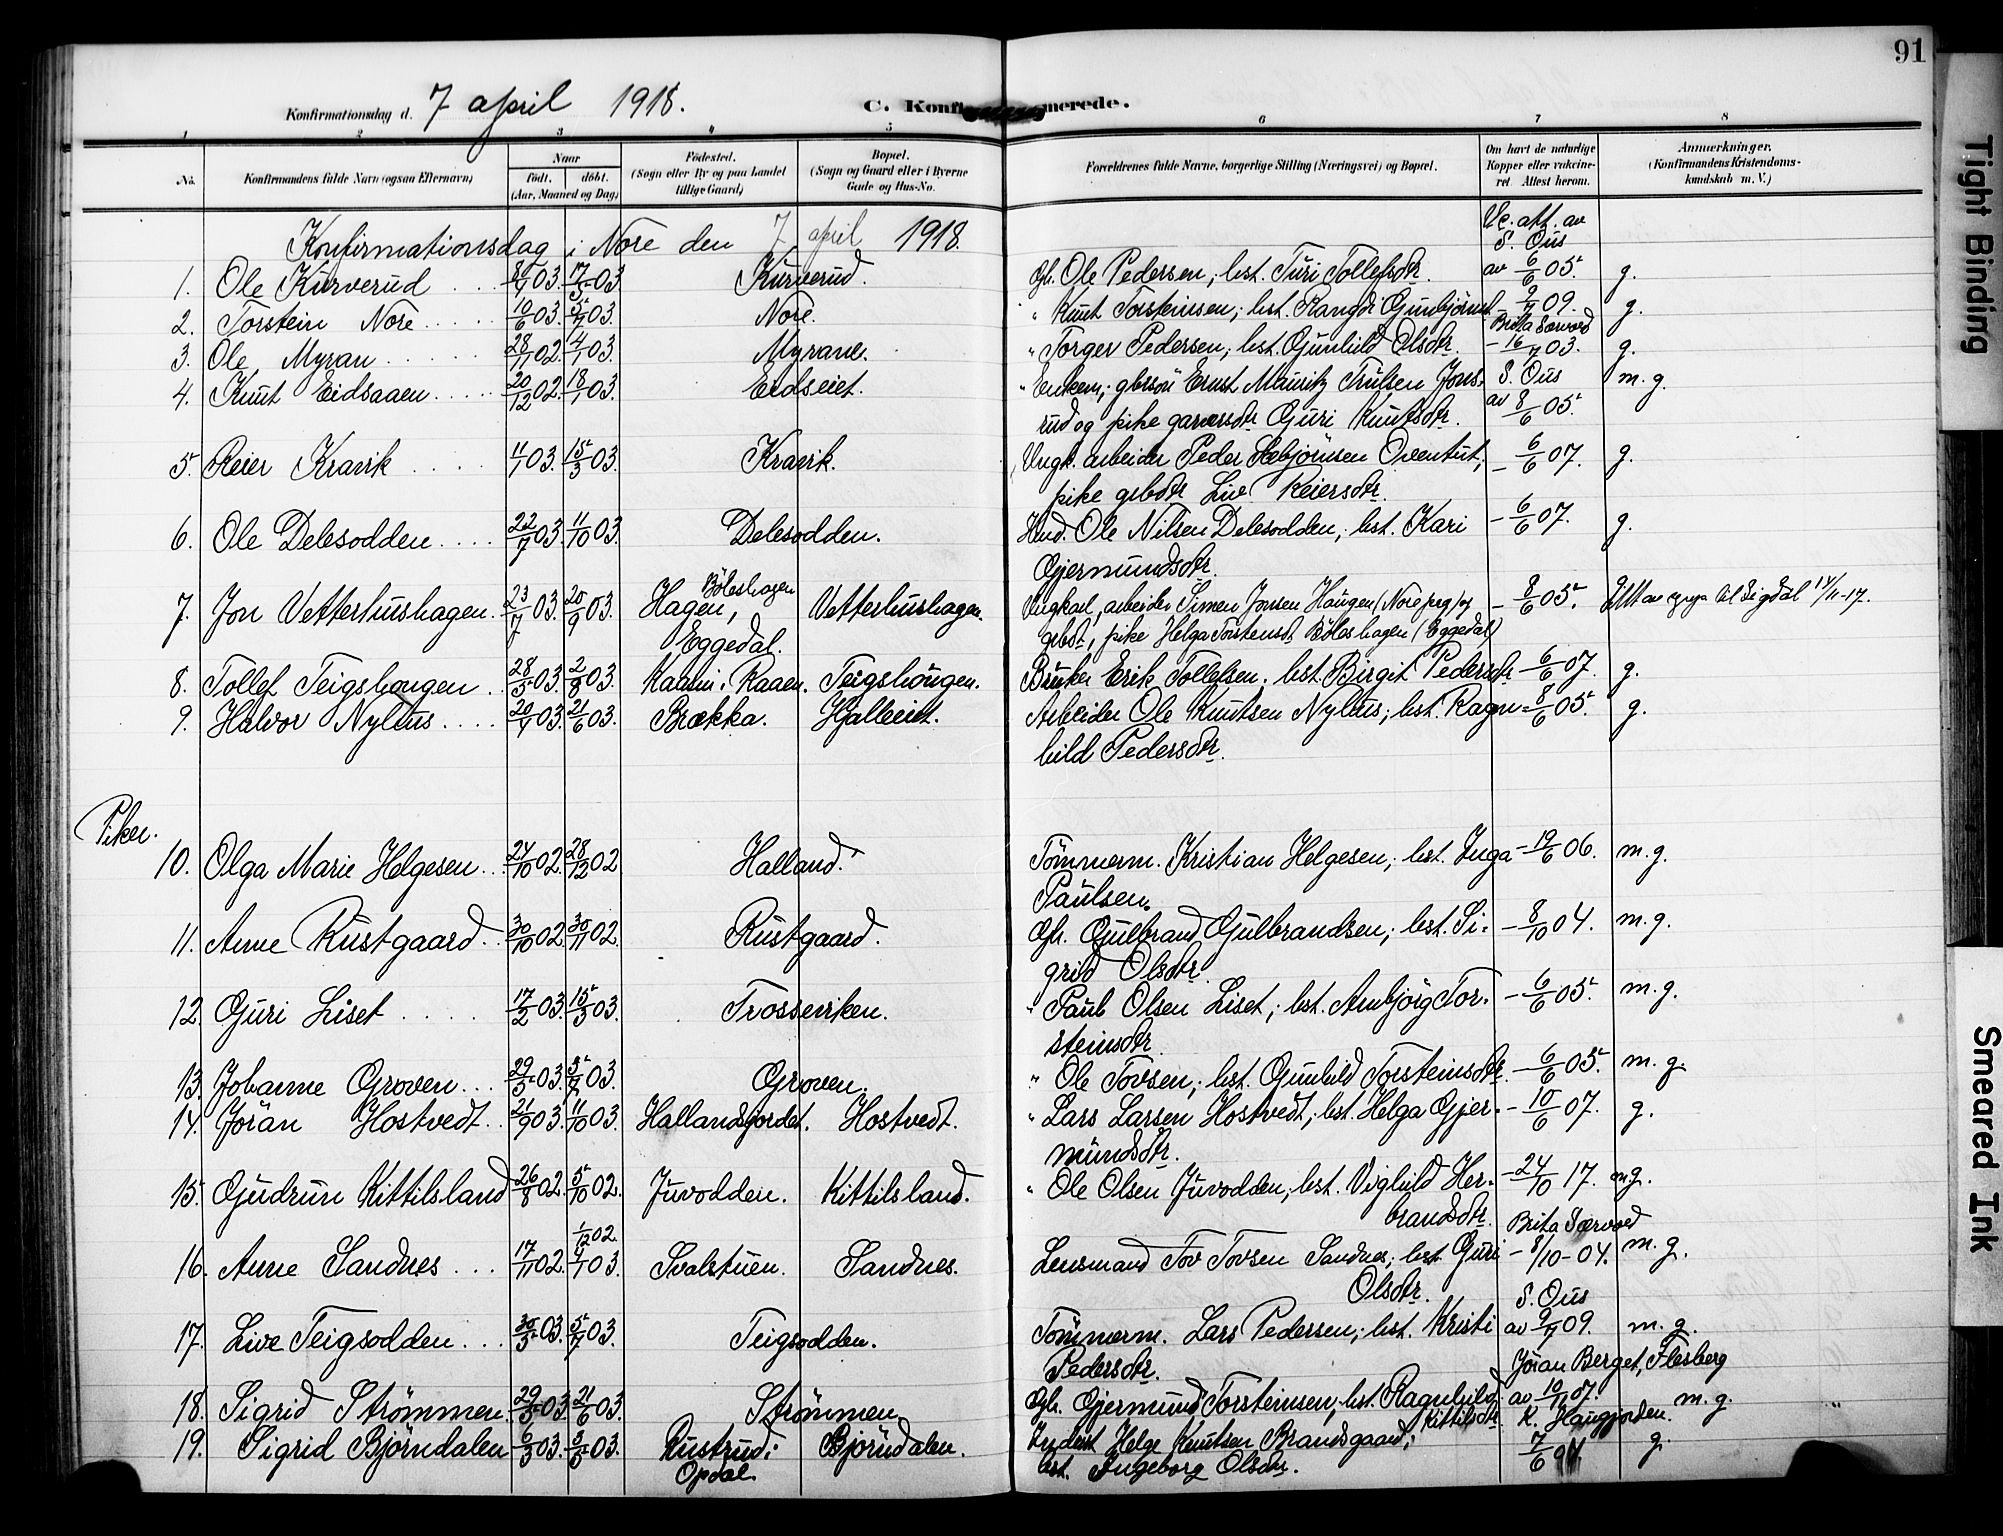 91
Konfirmationsdag d. 7 april 1918. C. Konfirmerede.
1 2 3 4 5 6 7 8
No. Konfirmandens fulde Navn (ogsaa Efternavn) Naar født. døbt. (Aar, Maaned og Dag) Fødested. (Sogn eller By og paa Landet tillige Gaard) Bopæl. (Sogn og Gaard eller i Byerne Gade og Hus-No. Forældrenes fulde Navne, borgerlige Stilling (Næringsvei) og Bopæl. Om havt de naturlige Kopper eller vakcineret. Attest herom. Anmerkninger. (Konfirmandens Kristendomskundskab m. V.)
Konfirmationsdag i Nore den 7 april 1918. Vc. att. av
S. Ous
1. Ole Kurverud 8/4 03. 17/5 03. Kurverud. Gbr. Ole Pedersen; hst. Turi Tollefsdtr. av 6/6 05. g.
2. Torstein Nore 10/6 03. 5/7 03. Nore. " Knut Torsteinsen; hst. Rangdi Gunbjørnsd. - 9/7 09. g.
Brita Sørvod
3. Ole Myran 28/1 02. 4/1 03. Myrane. " Torger Pedersen; hst. Gunhild Olsdtr. - 16/7 03. g.
4. Knut Eidsaaen 20/12 02. 18/1 03. Eidseiet. " Enkem; gbrsøn Ernst Mauritz Trulsen Jons- S. Ous m. g.
rud og pike garversdtr Guri Knutsdtr. av 8/6 05.
5. Reier Kravik 11/1 03. 15/3 03. Kravik. Ungk. arbeider Peder Asbjørnsen Oventut; - 6/6 07. g.
pike gbrdtr Live Reiersdtr.
6. Ole Delesodden 22/7 03. 11/10 03. Delesodden. Hmd. Ole Nilsen Delesodden; hst. Kari - 6/6 07. g.
Gjermundsdtr.
7. Jon Vetterhushagen. 23/7 03. 20/9 03. Hagen, Bøleshagen Vetterhushagen. Ungkarl, arbeider Simen Jonsen Haugen (Nore prg) og - 8/6 05. til Sigdal 14/11-17.
Eggedal. gbdt, pike Helga Torstensdt Bøleshagen (Eggedal)
8. Tollef Teigshougen 28/5 03. 2/8 03. Kaalin. Raaen. Teigshougen. Bruker Erik Tollefsen; hst. Birgit Pedersdtr - 6/6 07. g.
9. Halvor Nyhus 20/4 03. 21/6 03. Brækka. Hjalleiet. Arbeider Ole Knutsen Nyhus; hst. Ragn- 8/6 05. g.
hild Pedersdtr.
Piker.
10. Olga Marie Helgesen 24/10 02. 28/12 02 Halland. Tømmerm. Kristian Helgesen; hst. Inga - 19/6 06. m. g.
Paulsen.
11. Anne Rustgaard 30/10 02. 30/11 02. Rustgaard. Gbr. Gulbrand Gulbrandsen; hst. Si- - 8/10 04. m. g.
grid Olsdtr
12. Guri Liset 17/2 03. 15/3 03. Trosseviken. " Paul Olsen Liset; hst. Anbjørg Tor- - 6/6 05. m. g.
steinsdtr
13. Johanne Groven 29/5 03. 5/7 03. Groven. " Ole Tovsen; hst. Gunhild Torsteinsdtr. - 6/6 05. m. g.
14. Jøran Hostvedt 21/9 03. 11/10 03. Hallandsjordet. Hostvedt. " Lars Larsen Hostvedt; hst. Helga Gjer- - 10/6 07. g.
mundsdtr.
15. Gudrun Kittilsland 26/8 02. 5/10 02. Juvodden. Kittilsland. " Ole Olsen Juvodden; hst. Vighild Her- - 24/10 17. m. g.
brandsdtr.
1/12 02. Brita Sørvod
16. Anne Sandnes 17/11 02. 4/1 03. Svalstuen. Sandnes. Lensmand Tov Tovsen Sandnes; hst Guri - 8/10-04. m. g.
Olsdtr. S. Ous
17. Live Teigsodden 30/5 03. 5/7 03. Teigsodden. Tømmerm. Lars Pedersen; hst. Kristi av 9/7 09. m. g.
Pedersdtr. Jøran Berget, Flesberg
18. Sigrid Strømmen 29/5 03 21/6 03. Strømmen Gbr. Gjermund Torsteinsen; hst. Ragnhild av 10/11 07. m. g.
Kittilsdtr K. Haugjorden.
19. Sigrid Bjørndalen 6/3 03. 3/5 03. Rustrud: Bjørndalen. Inderst Helge Knutsen Brandsgaard; 7/6 g.
Opdal. hst. Ingeborg Olsdtr.
Tight Binding
Smeared Ink